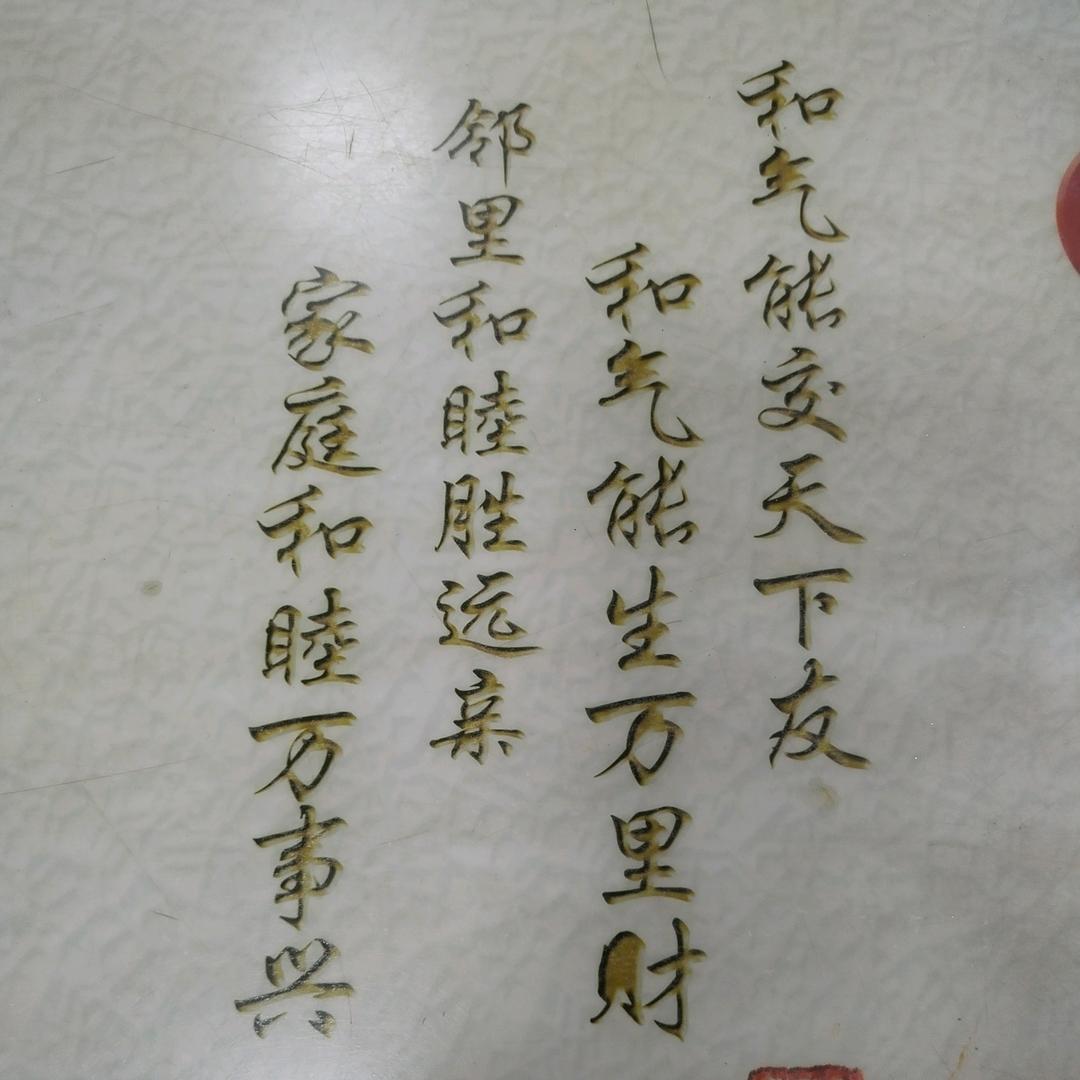 和气能交天下友
和气能生万里财
邻里和睦胜远亲
家庭和睦万事兴